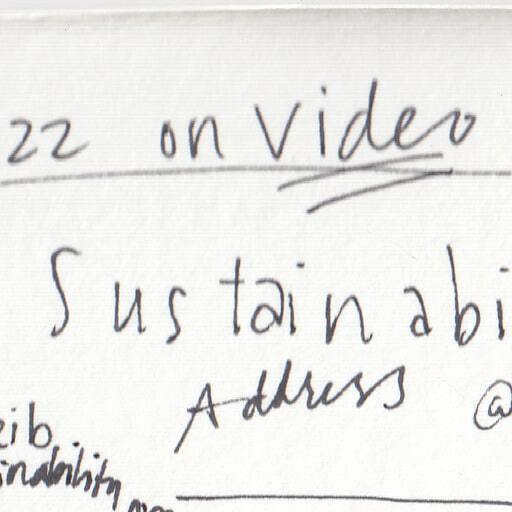 22 on Video
Sustainabi
Address @
eib
inability